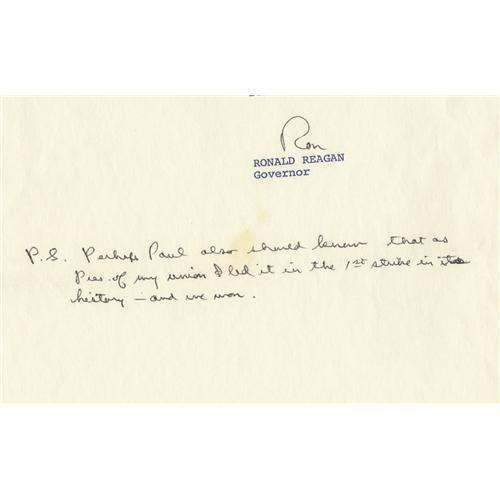 Ron
RONALD REAGAN
Governor
P.S. Perhaps Paul also should know that as
Pres. of my union I led it in the 1st strike in its
history – and we won.